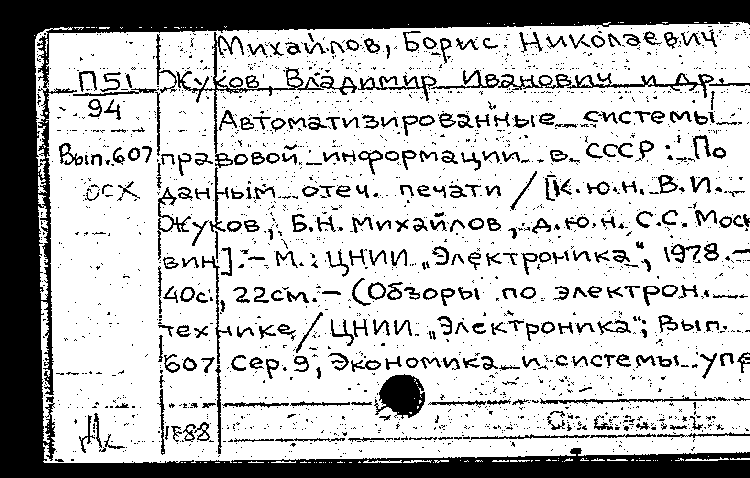 Михайлов, Борис Николаевич
П51 Жуков, Владимир Иванович и др.
94 Автоматизированные системы
Вып.607 правовой информации в СССР: По
ОСХ данным отеч. печати / [К.ю.н. В.И.
Жуков, Б.Н. Михайлов, д.ю.н. С.С. Моск
вин].- М.: ЦНИИ „Электроника“, 1978.-
40с., 22см.- (Обзоры по электрон.
технике / ЦНИИ „Электроника“; Вып.
607. Сер.9, Экономика и системы упр